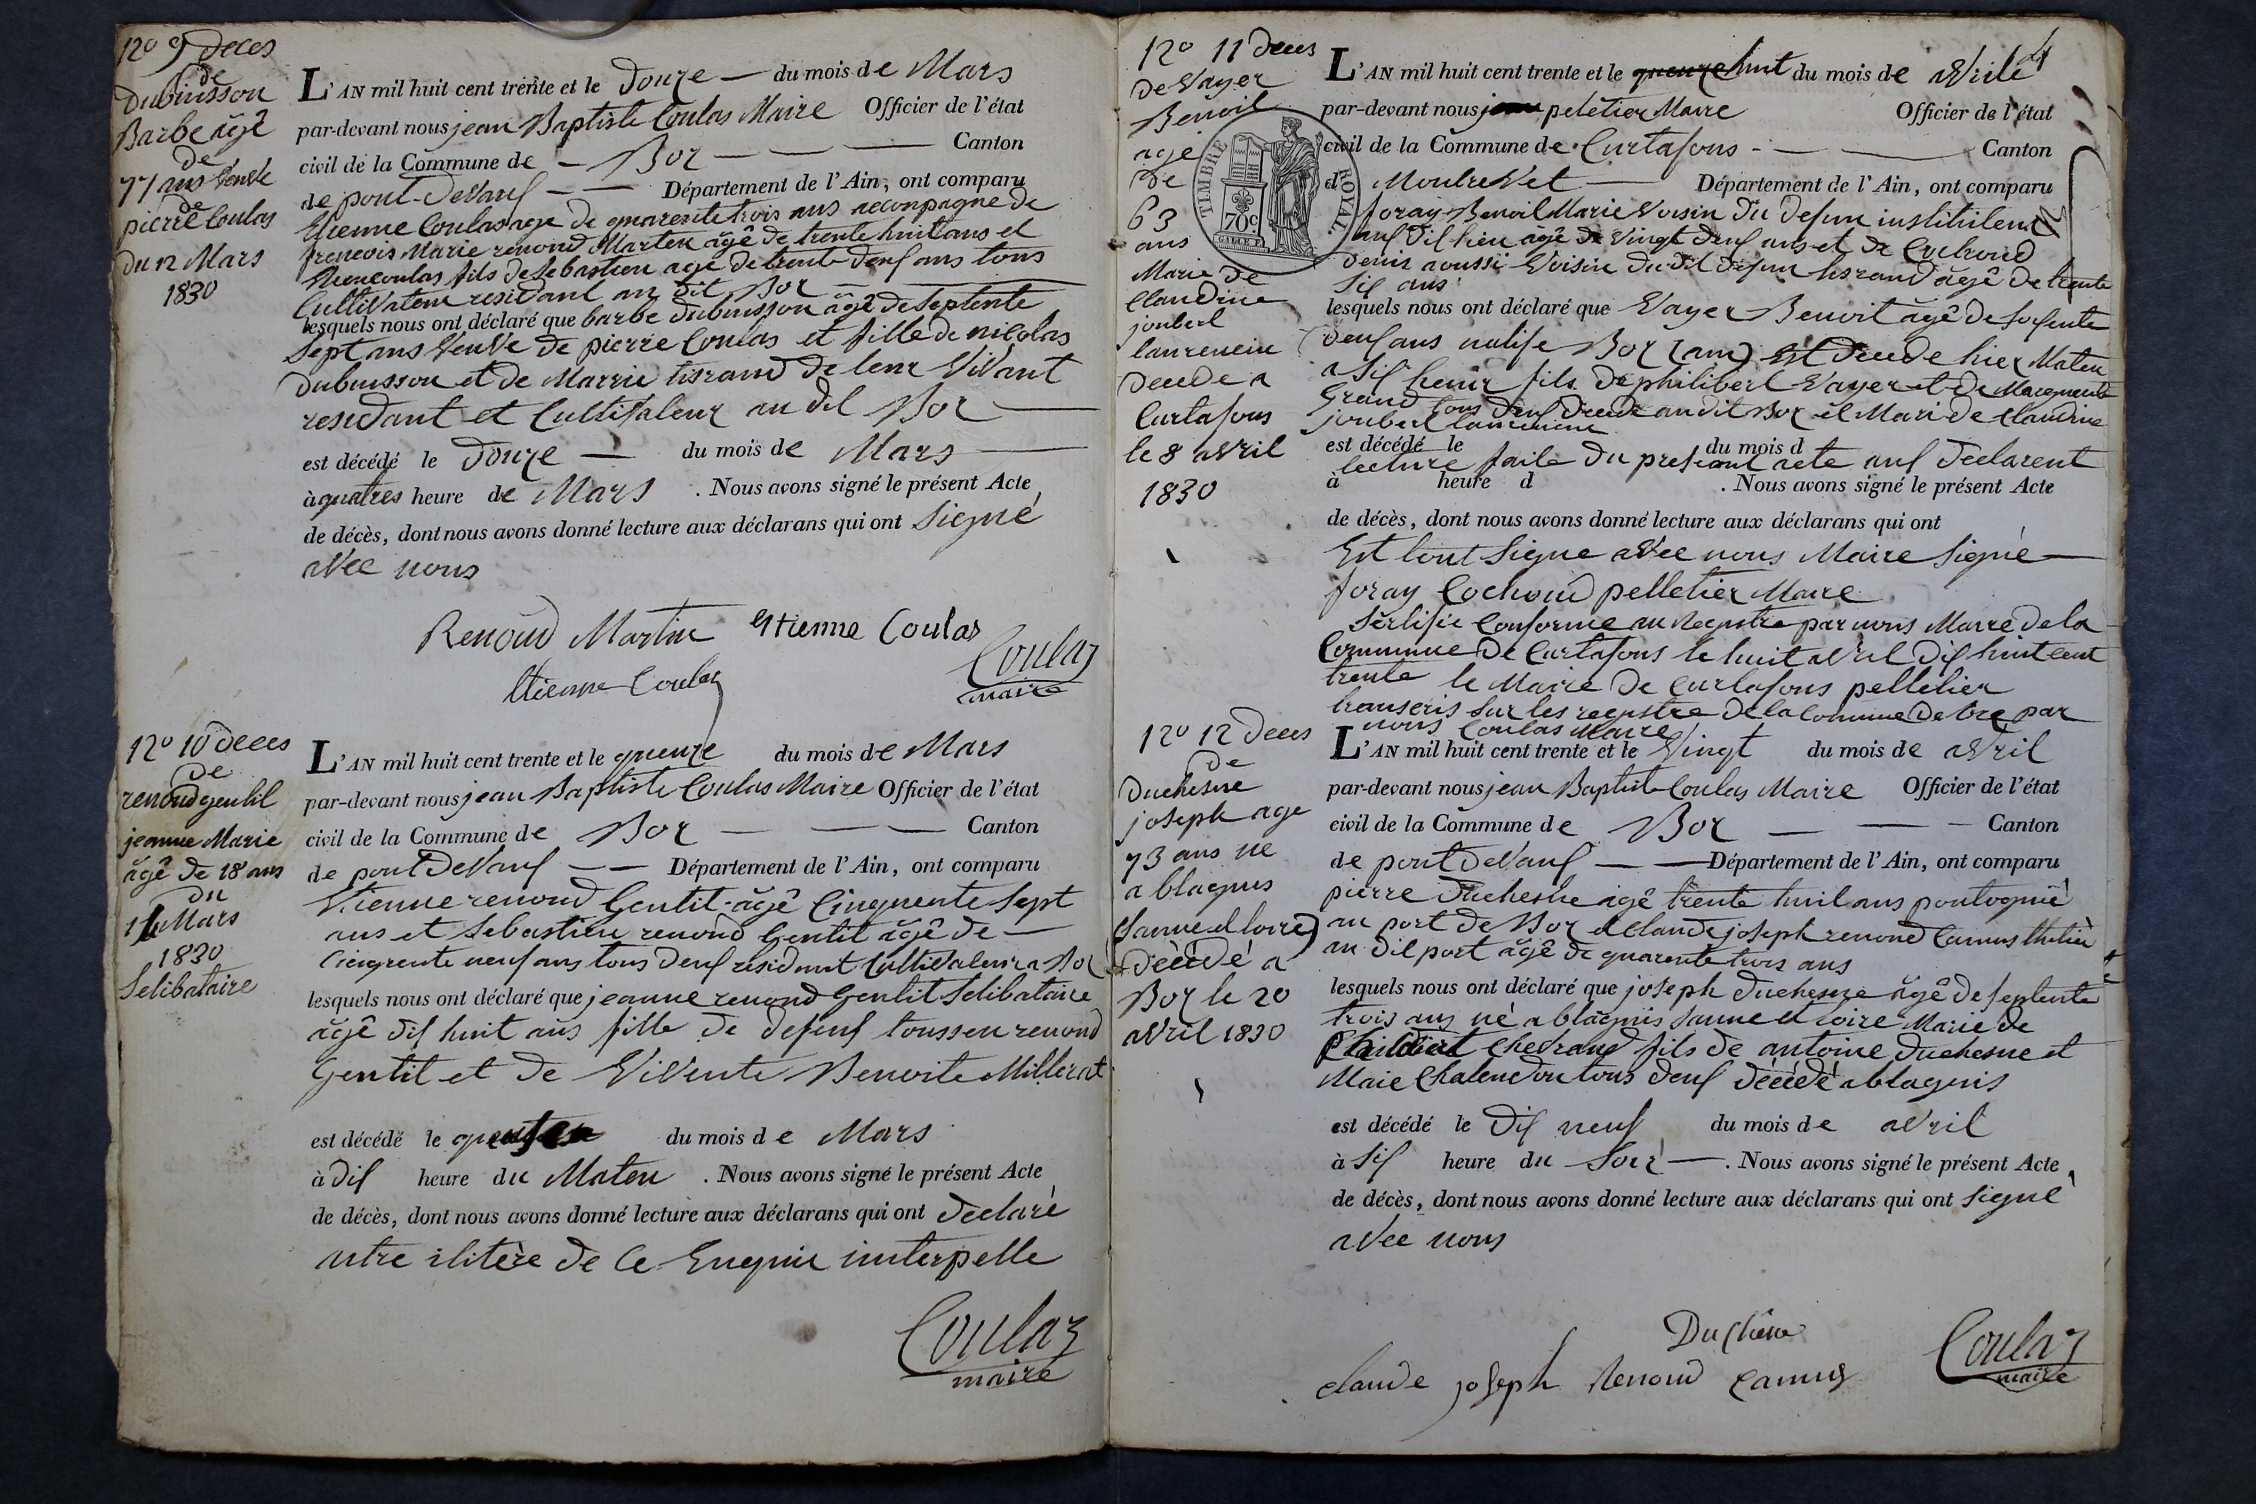 12º 9 Deces
de
Dubuisson
Barbe âgê
de
77 ans Veuve
de
pierre Coulas
du 12 Mars
1830
L'AN mil huit cent trente et le Douze du mois de Mars
par-devant nous jean Baptiste Coulas Maire Officier de l'état
civil de la Commune de Boz Canton
de pont-DeVaux Département de l'Ain, ont comparu
Etienne Coulas age de quarente trois ans acconpagne de
frencois Marie renoud Marten âgê de trente huit ans et
Etienne Coulas fils de Sebastien age de trente deux ans tous
CultiVateur residant au dit Boz
lesquels nous ont déclaré que barbe dubuisson âgê de septente
Sept ans VeuVe de pierre Coulas et fille de nicolas
Dubuisson et de Marrie tisrand de leur ViVant
residant et CultiVateur au dit Boz
est décédé le Douze du mois de Mars
à quatres heure de Mars . Nous avons signé le présent Acte
de décès, dont nous avons donné lecture aux déclarans qui ont Siegné
aVec nous
Renoud Martin Etienne Coulas
Etienne Coulas
Coulaz
maire
12º 10 deces
de
renoud gentil
jeanne Marie
âgê de 18 ans
du
Mars
1830
Selibataire
L'AN mil huit cent trente et le quenze du mois de Mars
par-devant nous jean Baptiste Coulas Maire Officier de l'état
civil de la Commune de Boz Canton
de pont DeVaux Département de l'Ain, ont comparu
Etienne renoud Gentil âgê Cinquente Sept
ans et Sebastien renoud Gentil âgê de
Cinquente neuf ans tous deux residant CultiVateur a Boz
lesquels nous ont déclaré que jeanne renoud Gentil Selibataire
âgê dix huit ans fille de defeuf toussen renoud
Gentil et de ViVente Benoite Millerat
est décédé le du mois de Mars
à dix heure du Maten . Nous avons signé le présent Acte
de décès, dont nous avons donné lecture aux déclarans qui ont declaré
ntre ilitère de Ce Enquie interpelle
Coulaz
maire
12º 11 deces
de Vayer
Benoit
age
de
63
ans
Marie de
Claudine
joubert
laurencin
decede a
Curtafons
le 8 aVril
1830
TIMBRE ROYAL.
70c
4
L'AN mil huit cent trente et le huit du mois de aVril
par-devant nous peletier Maire Officier de l'état
civil de la Commune de Curtafons Canton
d MontreVel Département de l'Ain, ont comparu
foray Benoit Marie Voisin du defun institileur
aux dit lieu âgê de Vingt deux ans et de Cochoud
denis aoussi Voisin du dit defun tisrand âgê de trente
six ans
lesquels nous ont déclaré que Vayer Benoit âgê de soisente
deux ans natife Boz (ain) est decede hier Maten
a six heure fils de philibert Vayer et de Margueritte
Grand tous deux decede au dit Boz et Mari de Claudine
joubert laurencin
est décédé le du mois d
lecture faite du present acte aux declarent
à heure d . Nous avons signé le présent Acte
de décès, dont nous avons donné lecture aux déclarans qui ont
Est tout Siegne aVec nous Maire Signé
foray Cochoud pelletier Maire
Sertifie Conforme au registre par nous Maire de la
Commune de Curtafons le huit aVril dix huit cent
trente le Maire de Curtafons pelletier
transcris sur les registre de la Commune de boz par
nous Coulas Maire
12º 12 Deces
de
Duchesne
joseph age
73 ans ne
a blagnis
(saune et loire)
décédé a
Boz le 20
aVril 1830
L'AN mil huit cent trente et le Vingt du mois de aVril
par-devant nous jean Baptiste Coulas Maire Officier de l'état
civil de la Commune de Boz Canton
de pont DeVaux Département de l'Ain, ont comparu
pierre Duchesne âgê trente huit ans
au port de Boz et Claude joseph renoud Camus
au dit port âgê de quarente trois ans
lesquels nous ont déclaré que joseph Duchesne âgê de septente
trois ans né a blagnis saune et loire Marie de
Chevrand fils de antoine Duchesne et
Maie Chalendon tous deux décédé a blagnis
est décédé le Dix neuf du mois de avril
à Six heure du Soir . Nous avons signé le présent Acte
de décès, dont nous avons donné lecture aux déclarans qui ont Signé
aVec nous
Duchêne
claude joseph Renoud camus
Coulaz
maire